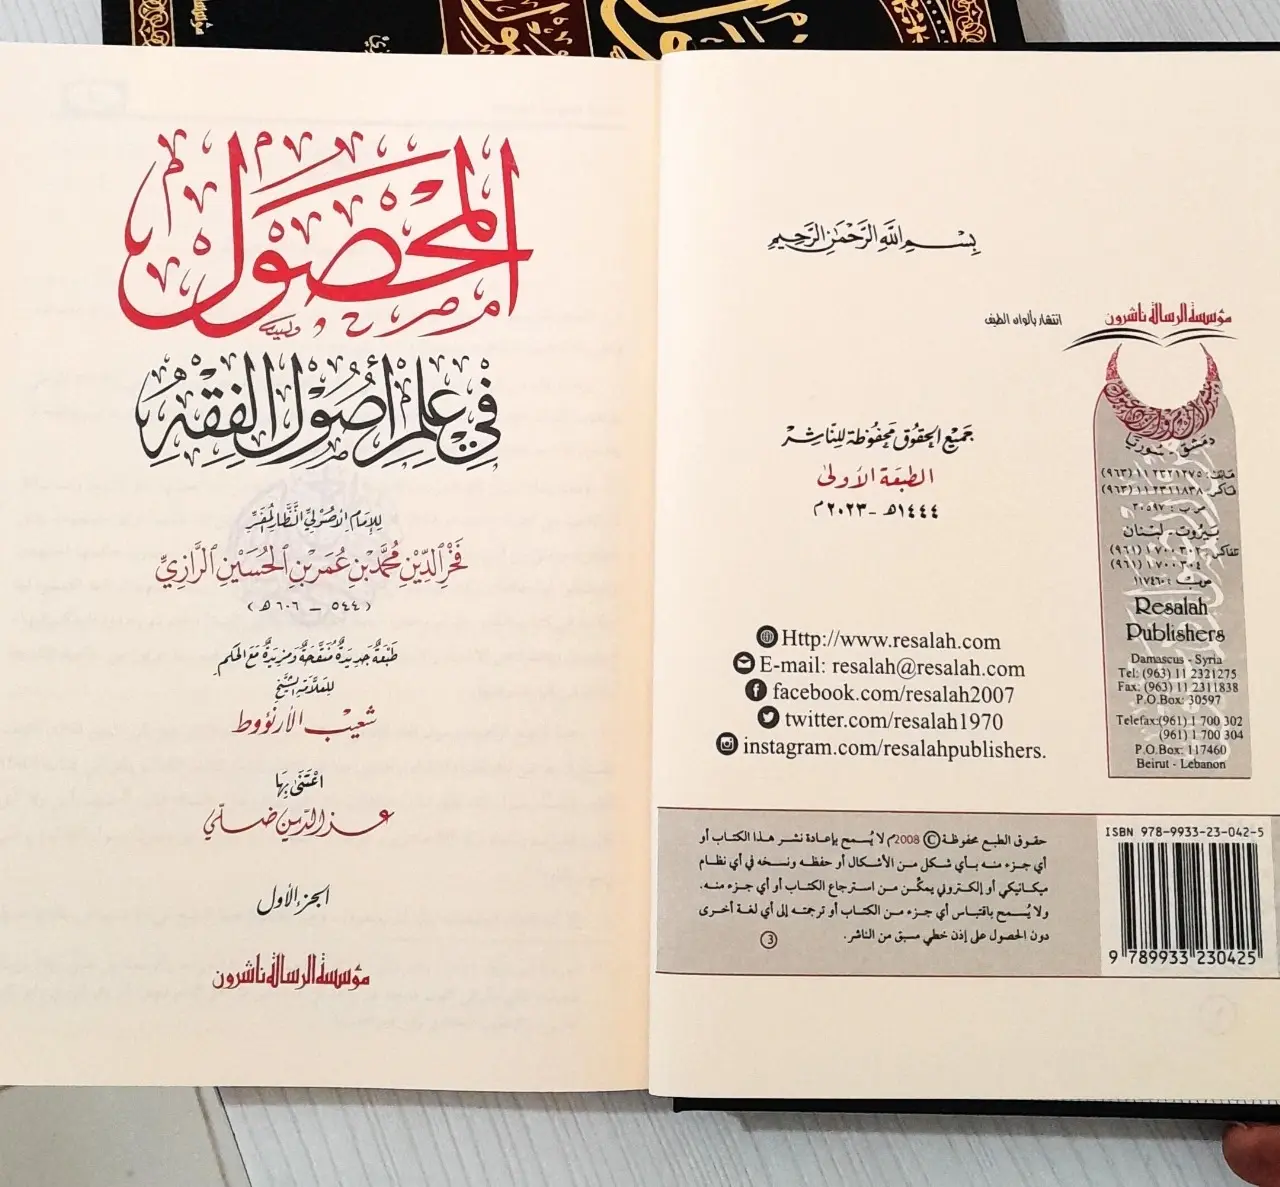 بِسْمِ اللَّهِ الرَّحْمٰنِ الرَّحِيمِ
مؤسسة الرسالة ناشرون
انتشار بألوان الطيف
دمشق - سوريا
هاتف: ٢٣٢١٢٧٥ ١١ (٩٦٣)
فاكس: ٢٣١١٨٣٨ ١١ (٩٦٣)
ص.ب: ٣٠٥٩٧
بيروت - لبنان
تلفاكس: ٧٠٠٣٠٢ ١ (٩٦١)
٧٠٠٣٠٤ ١ (٩٦١)
ص.ب: ١١٧٤٦٠
Resalah
Publishers
Damascus - Syria
Tel: (963) 11 2321275
Fax: (963) 11 2311838
P.O.Box: 30597
Telefax:(961) 1 700 302
(961) 1 700 304
P.O.Box: 117460
Beirut - Lebanon
جميع الحقوق محفوظة للناشر
الطبعة الأولى
١٤٤٤هـ - ٢٠٢٣م
Http://www.resalah.com
E-mail: resalah@resalah.com
facebook.com/resalah2007
twitter.com/resalah1970
instagram.com/resalahpublishers.
حقوق الطبع محفوظة © 2008م لا يُسمح بإعادة نشر هذا الكتاب أو
أي جزء منه بأي شكل من الأشكال أو حفظه ونسخه في أي نظام
ميكانيكي أو إلكتروني يمكّن من استرجاع الكتاب أو أي جزء منه.
ولا يُسمح باقتباس أي جزء من الكتاب أو ترجمته إلى أي لغة أخرى
دون الحصول على إذن خطي مسبق من الناشر.
3
ISBN 978-9933-23-042-5
9 789933 230425
المحصول
في علم أصول الفقه
للإمام الأصولي النظار المفسر
فخر الدين محمد بن عمر بن الحسين الرازي
(٥٤٤ - ٦٠٦هـ)
طبعة جديدة منقحة ومزيدة مع الحكم
للعلامة الشيخ
شعيب الأرنؤوط
اعتنى بها
عز الدين ضلي
الجزء الأول
مؤسسة الرسالة ناشرون